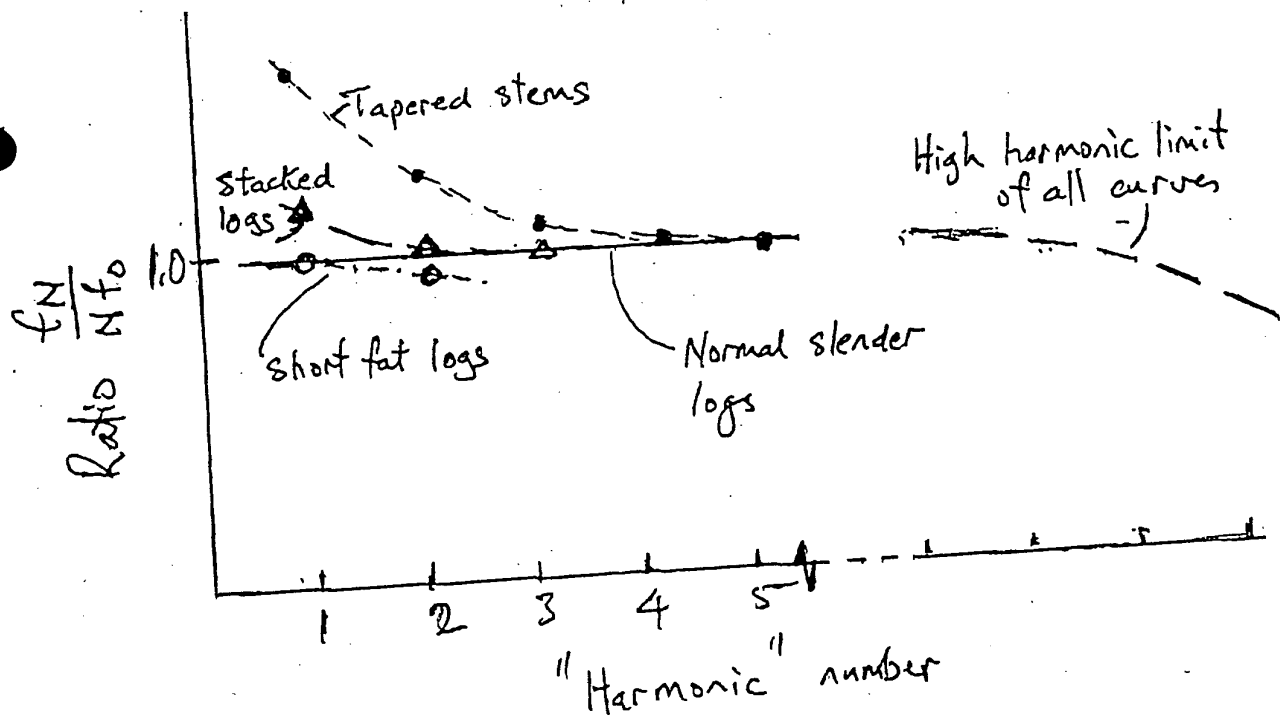 Tapered stems
Stacked
logs
High harmonic limit
of all curves
1.0
Ratio fN / N f0
short fat logs
Normal slender
logs
1 2 3 4 5
"Harmonic" number